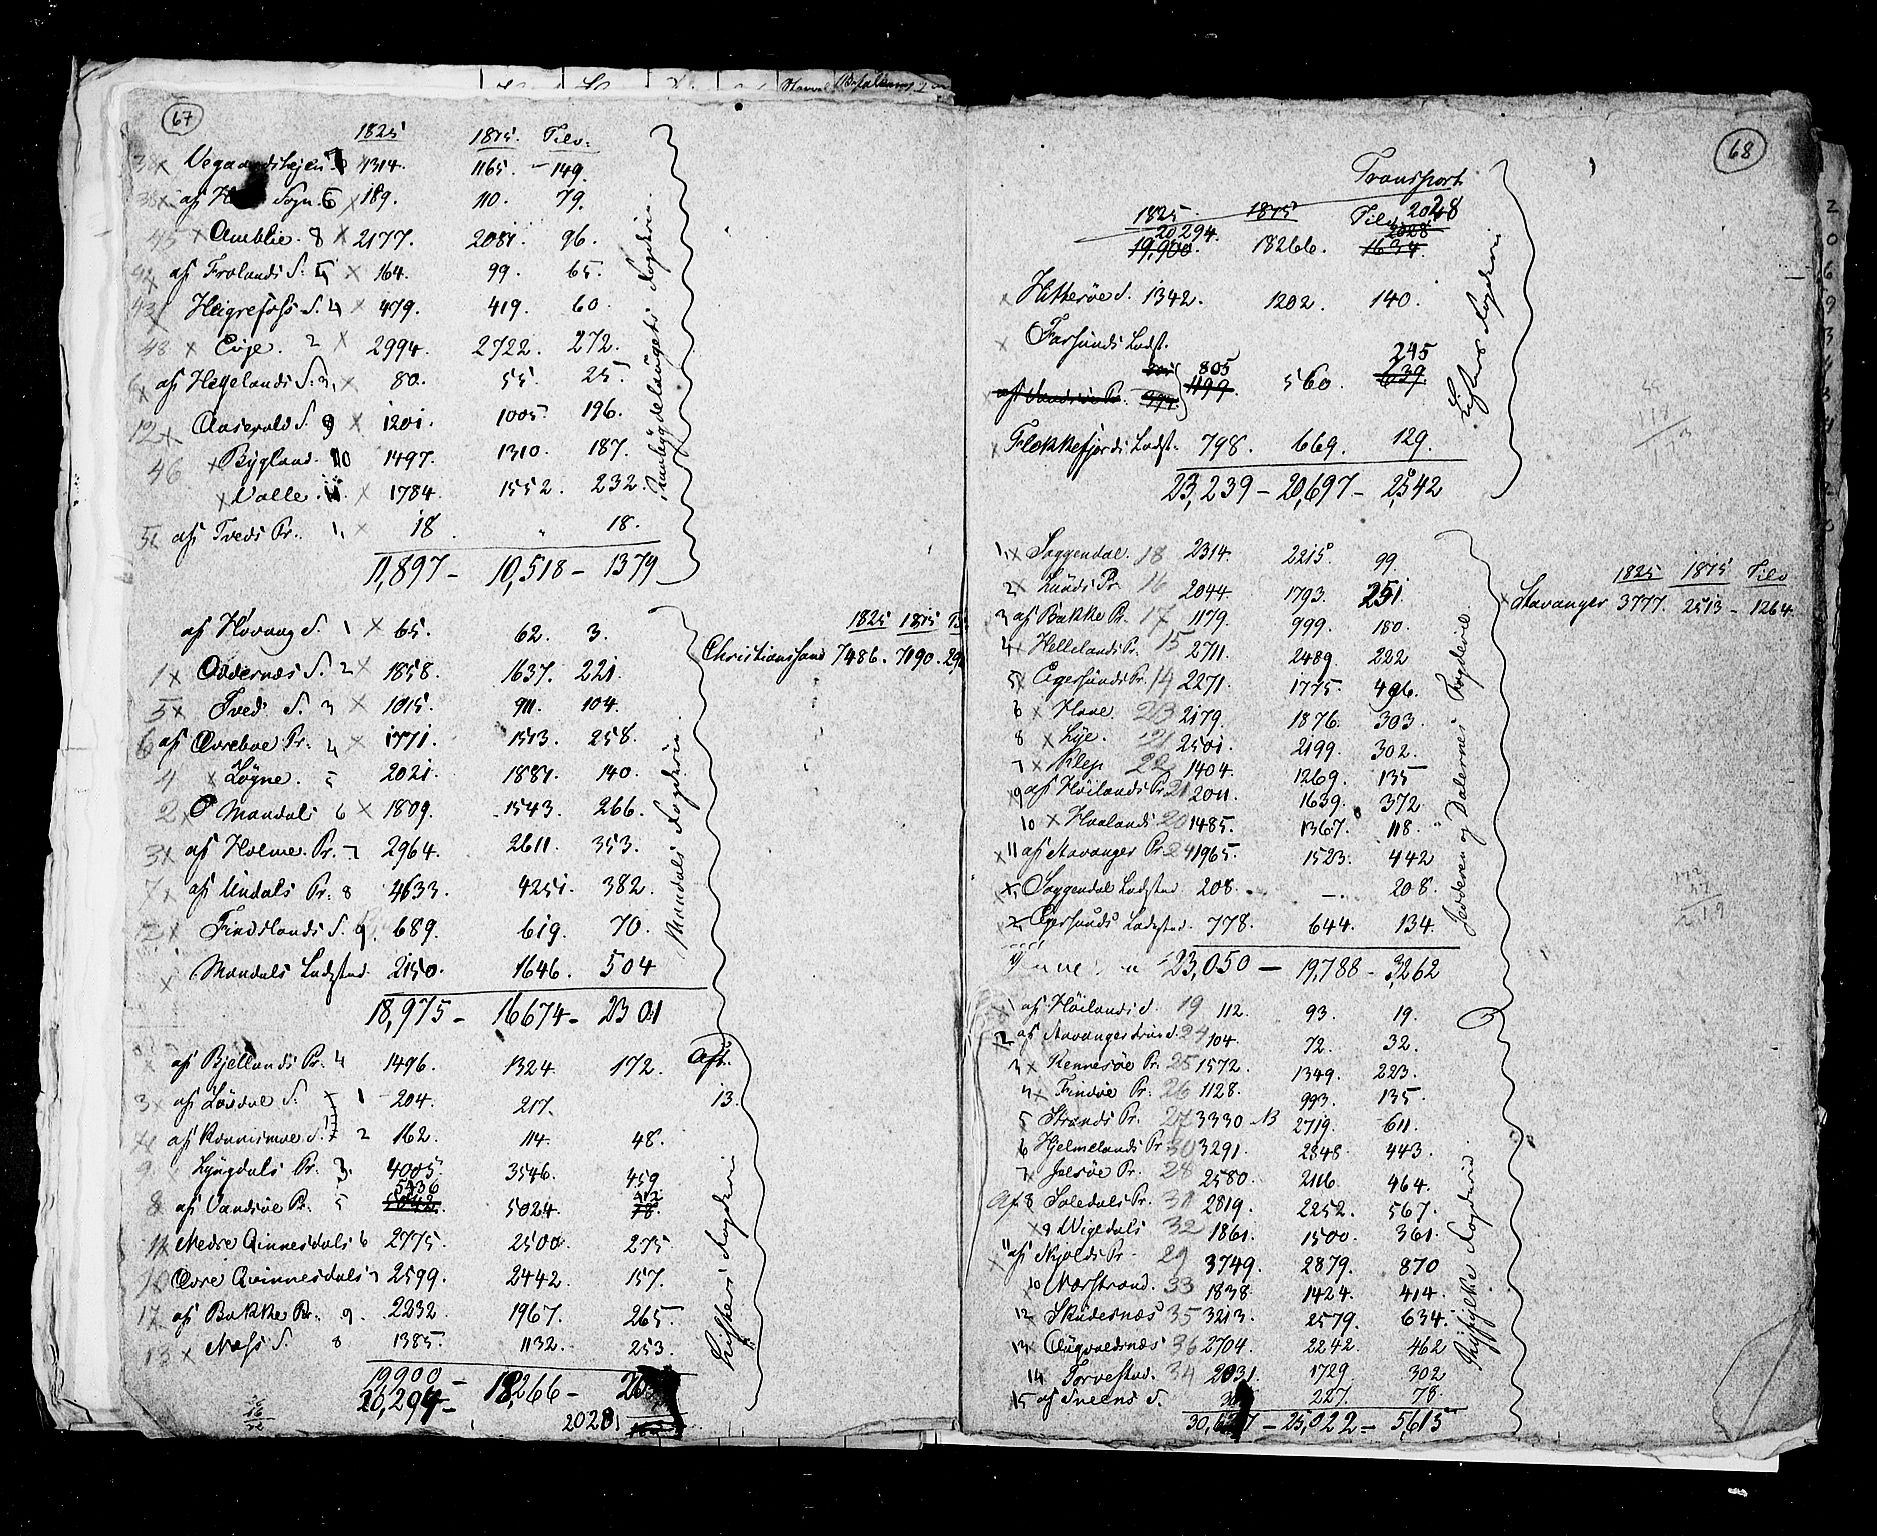 67
1825 1815. Tilv:
38 x Vegaardshejen 1314. 1165. 149.
af H Sogn. 6 x 189. 110. 79.
45 x Amblie. 8 x 2177. 2081. 96.
af Frolands S. 5 x 164. 99. 65.
Heigrefoss S. 4 x 479. 419. 60.
48 x Evje. 2 x 2994. 2722. 272.
af Hegelands S. 3, x 80. 55. 25.
12 x Aaserald S. 9 x 1201. 1005. 196.
46 x Bygland. 10 1497. 1310. 187.
x Valle. 11. x 1784. 1552. 232.
af Tveds Pr. 1, x 18. " 18.
11,897 – 10,518 – 1379
Raabygdelaugets Fogderie
af Høvaag S. 1 x 65. 62. 3.
1 x Oddernæs S. 2 x 1858. 1637. 221.
5 x Tved S. 3 x 1015. 911. 104.
6 af Øvreboe Pr. 4 x 1771. 1513. 258.
4 x Løgne. 5 2021. 1881. 140.
2 x O Mandals 6 x 1809. 1543. 266.
3 x af Holme Pr. 7 2964. 2611. 353.
7 x af Undals Pr. 8 4633. 4251. 382.
12 x Findslands S. 9. 689. 619. 70.
x Mandals Ladested 2150. 1646. 504
18,975 – 16674 – 2301
Mandals Fogderie
1825 1815
Christianssand 7486. 7190.
x af Bjellands Pr. 4 1496. 1324. 172.
3 x af Løvdal S. x 1 204. 217. Aft. 13.
af Konnismoe S. x 2 162. 114. 48.
9 Lyngdals Pr. 3. 4005. 3546. 459
8 af Vandsøe Pr. 5 5436 5024. 412
11 x Nedre Qvinnesdals 6 2775. 2500. 275.
10 Øvre Qvinnesdals 7 2599. 2442. 157.
12 af Bakke Pr. 9. 2232 1967. 265.
13 x Næss S. 8 1385. 1132. 253.
19900
20,294 – 18,266 –
2028
Listers Fogderie
68
Transport
1825. 1815 Tilv 2028
20,294.
19,900. 18266. 2028 1634.
x Hitterøe S. 1342. 1202. 140.
x Farsunds Ladst.
805 245
af Vandsøe Pr. 394. 1199. 560. 639.
x Flekkefjords Ladst. 798. 669. 129.
23,239 – 20,697 – 2542
Listers Fogderie
1 x Soggendal. 18 2314. 2215. 99.
2 x Lunds Pr. 16 2044 1793. 251.
3 af Bakke Pr. 17 1179. 999. 180.
4 x Hellelands Pr. 15 2711. 2489. 222
5 x Egersunds Pr. 14 2271. 1775. 496.
6 x Haae. 23 2179. 1876. 303.
8 x Lye. 21 2501. 2199. 302.
7 x Klep 22 1404. 1269. 135
9 af Høilands Pr. 21 2011. 1639. 372
10 x Haalands 20 1485. 1367. 118.
x 11 af Stavanger Pr. 24 1965. 1523. 442
x Soggendal Ladested 208. – 208.
x Egersunds Ladested. 778. 644. 134.
23,050 – 19,788 – 3,262
Jedderen og Dalernes Fogderie
1825 1815 Tilv
x Stavanger 3777. 2513 – 1264.
x 1 af Høilands S. 19 112. 93. 19.
2 af Stavangers S. 24 104. 72. 32.
3 x Rennesøe Pr. 25 1572. 1349. 223.
4 x Findøe Pr. 26 1128. 993. 135.
5 Strands Pr. 27 3330 2719. 611.
6 Hjelmelands Pr. 30 3291. 2848. 443.
7 x Jelsøe Pr. 28 2580. 2116. 464.
Af 8 Soledals Pr. 31 2819. 2252. 567.
x 9 Vigedals 32 1861. 1500. 361.
x 11 af Skjolds Pr. 29 3749. 2879. 870
10 Nærstrand. 33 1838. 1424. 414.
12 Skudesnæs 35 3213. 2579. 634.
13 x Augvaldsnæs 36 2704. 2242. 462
14 Torvestad. 34 2031. 1729. 302
15 af Sveens S. 227. 78.
30,637 – 25,022 – 5,615
Ryfylke Fogderie